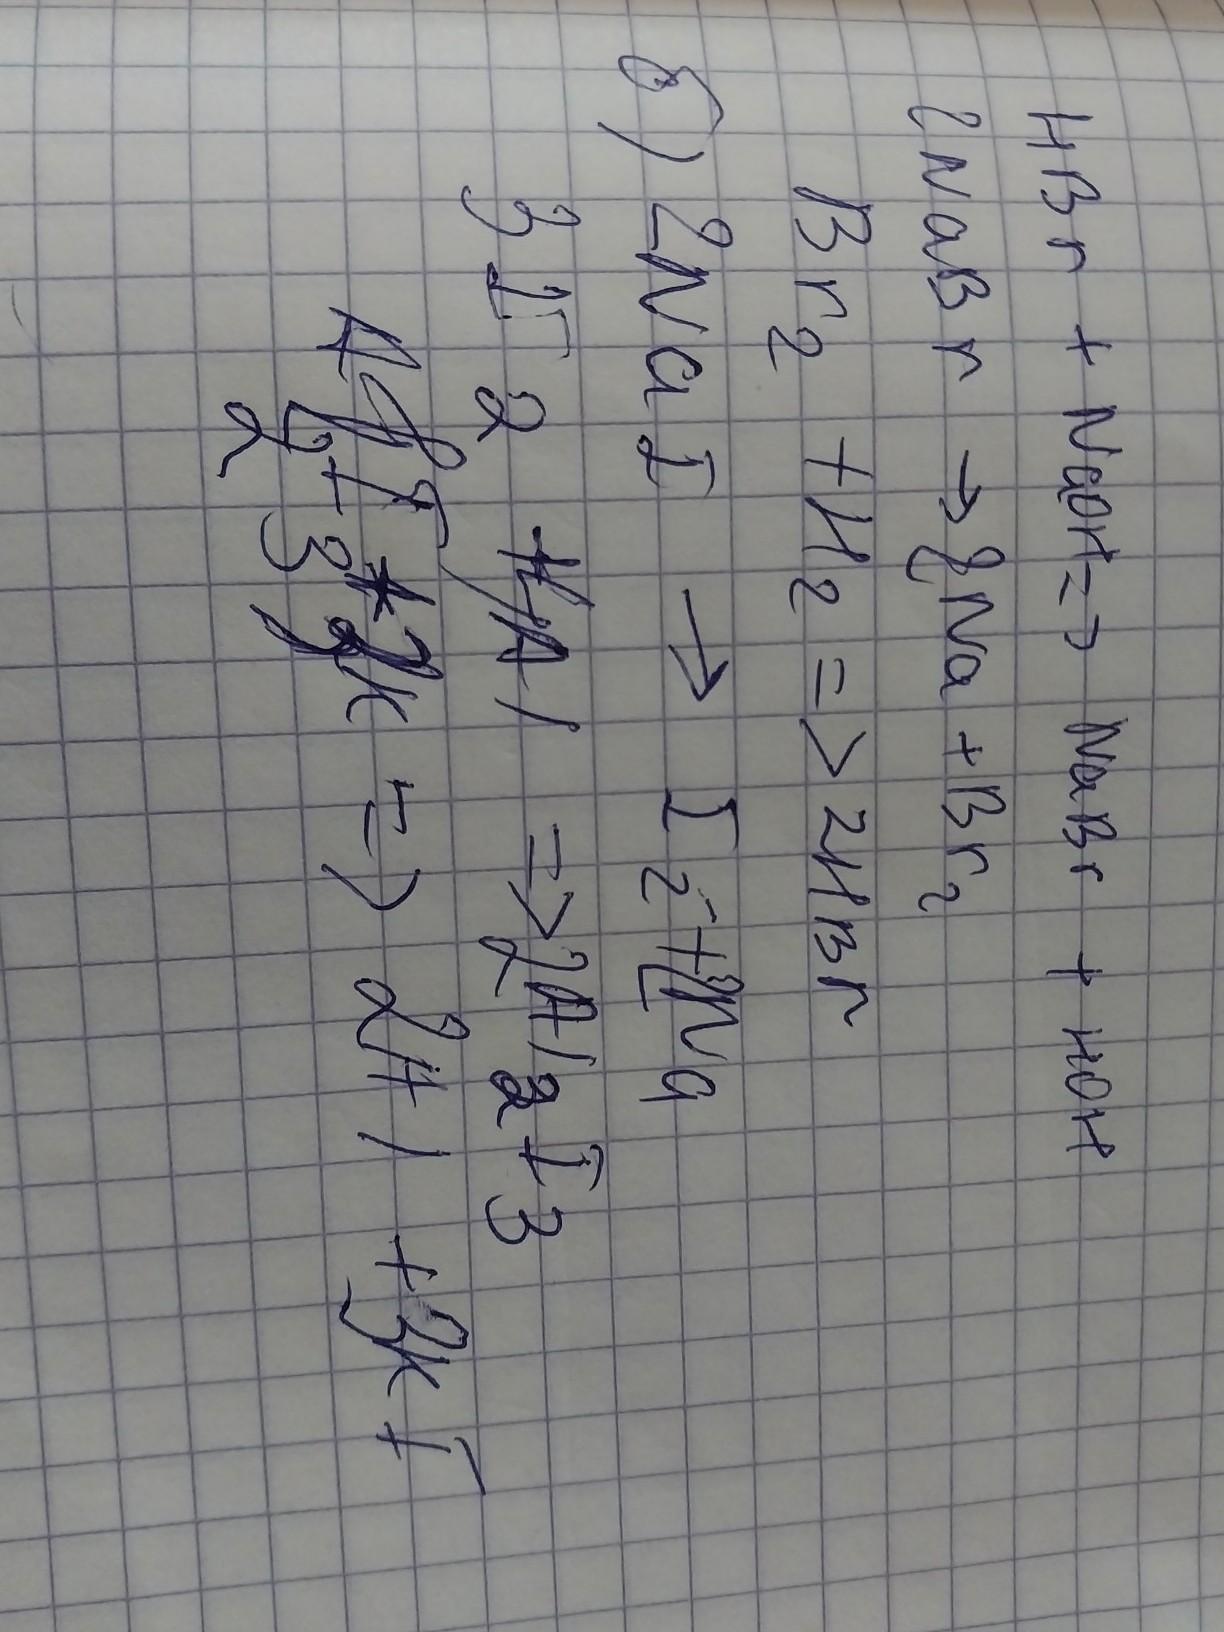 HBr + NaOH => NaBr + HOH
2NaBr → 2Na + Br2
Br2 + H2 => 2HBr
б) 2NaI → I2 + 2Na
3I2 + Al => 2Al2I3
=> 2Al + 3KI